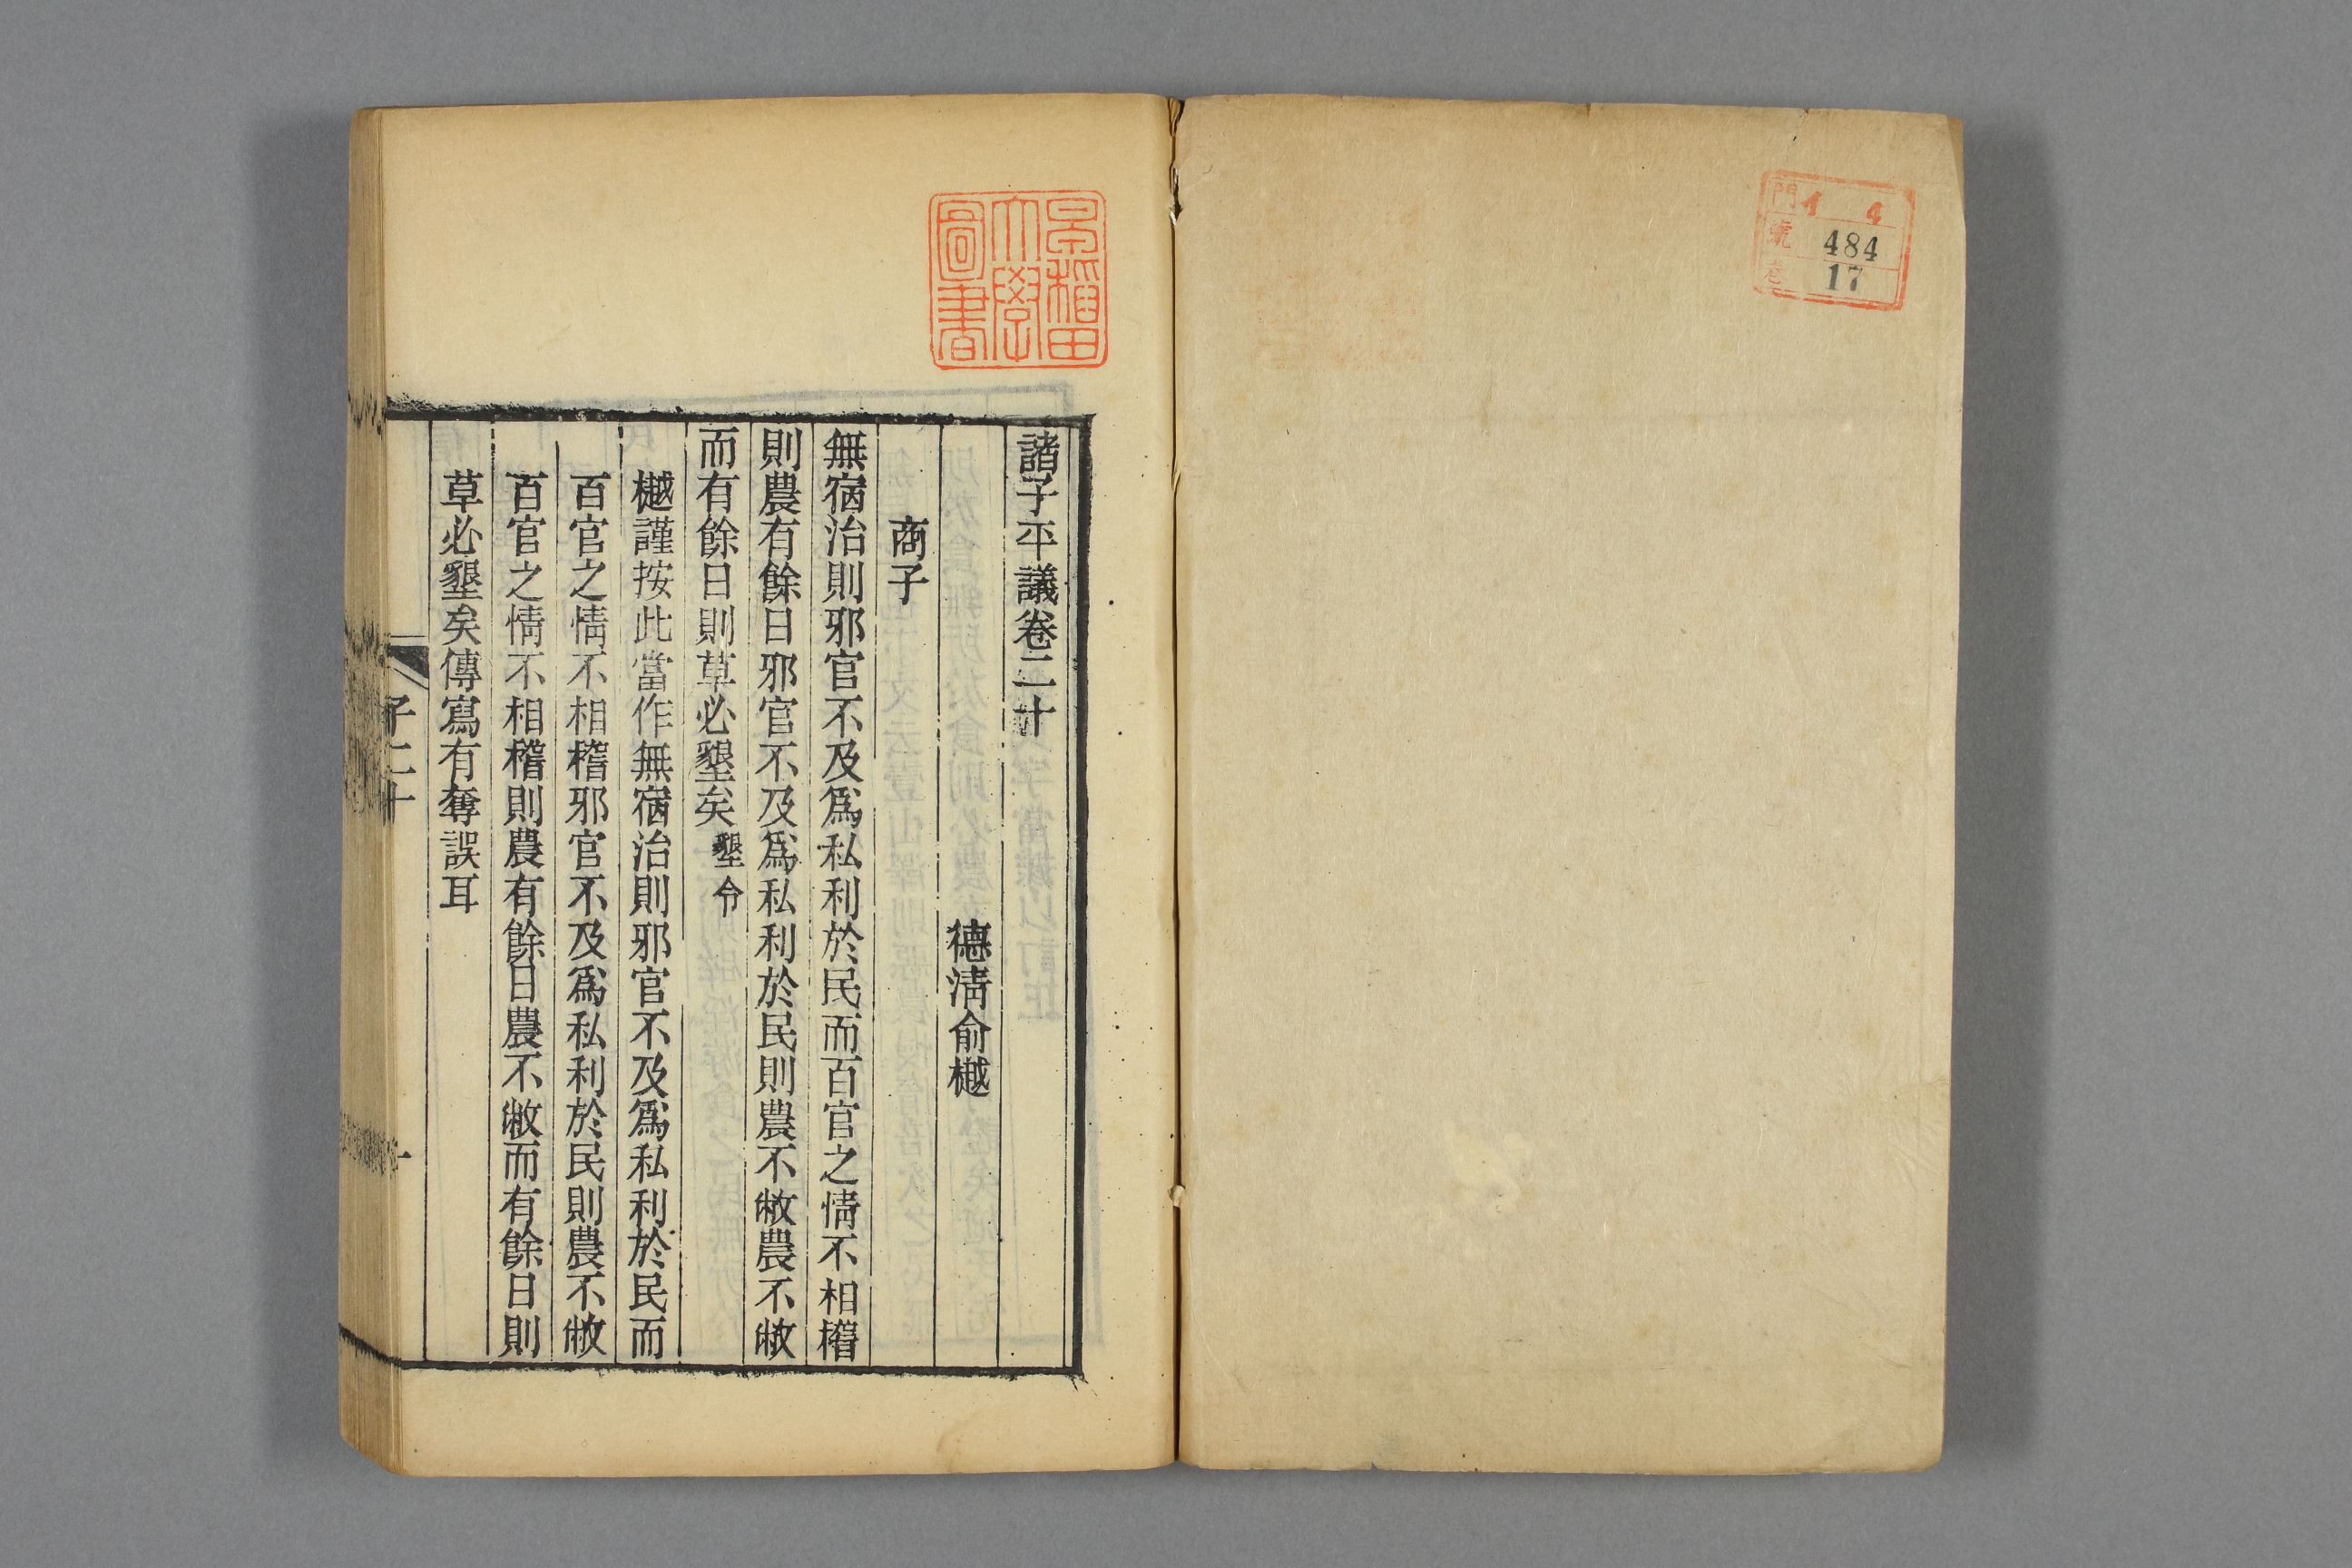 門 イ 4
號 484
巻 17
早稲田
大學
圖書
諸子平議卷二十
德清俞樾
商子
無宿治則邪官不及爲私利於民而百官之情不相稽
則農有餘日邪官不及爲私利於民則農不敝農不敝
而有餘日則草必墾矣墾令
樾謹按此當作無宿治則邪官不及爲私利於民而
百官之情不相稽邪官不及爲私利於民則農不敝
百官之情不相稽則農有餘日農不敝而有餘日則
草必墾矣傳寫有奪誤耳
子二十
一